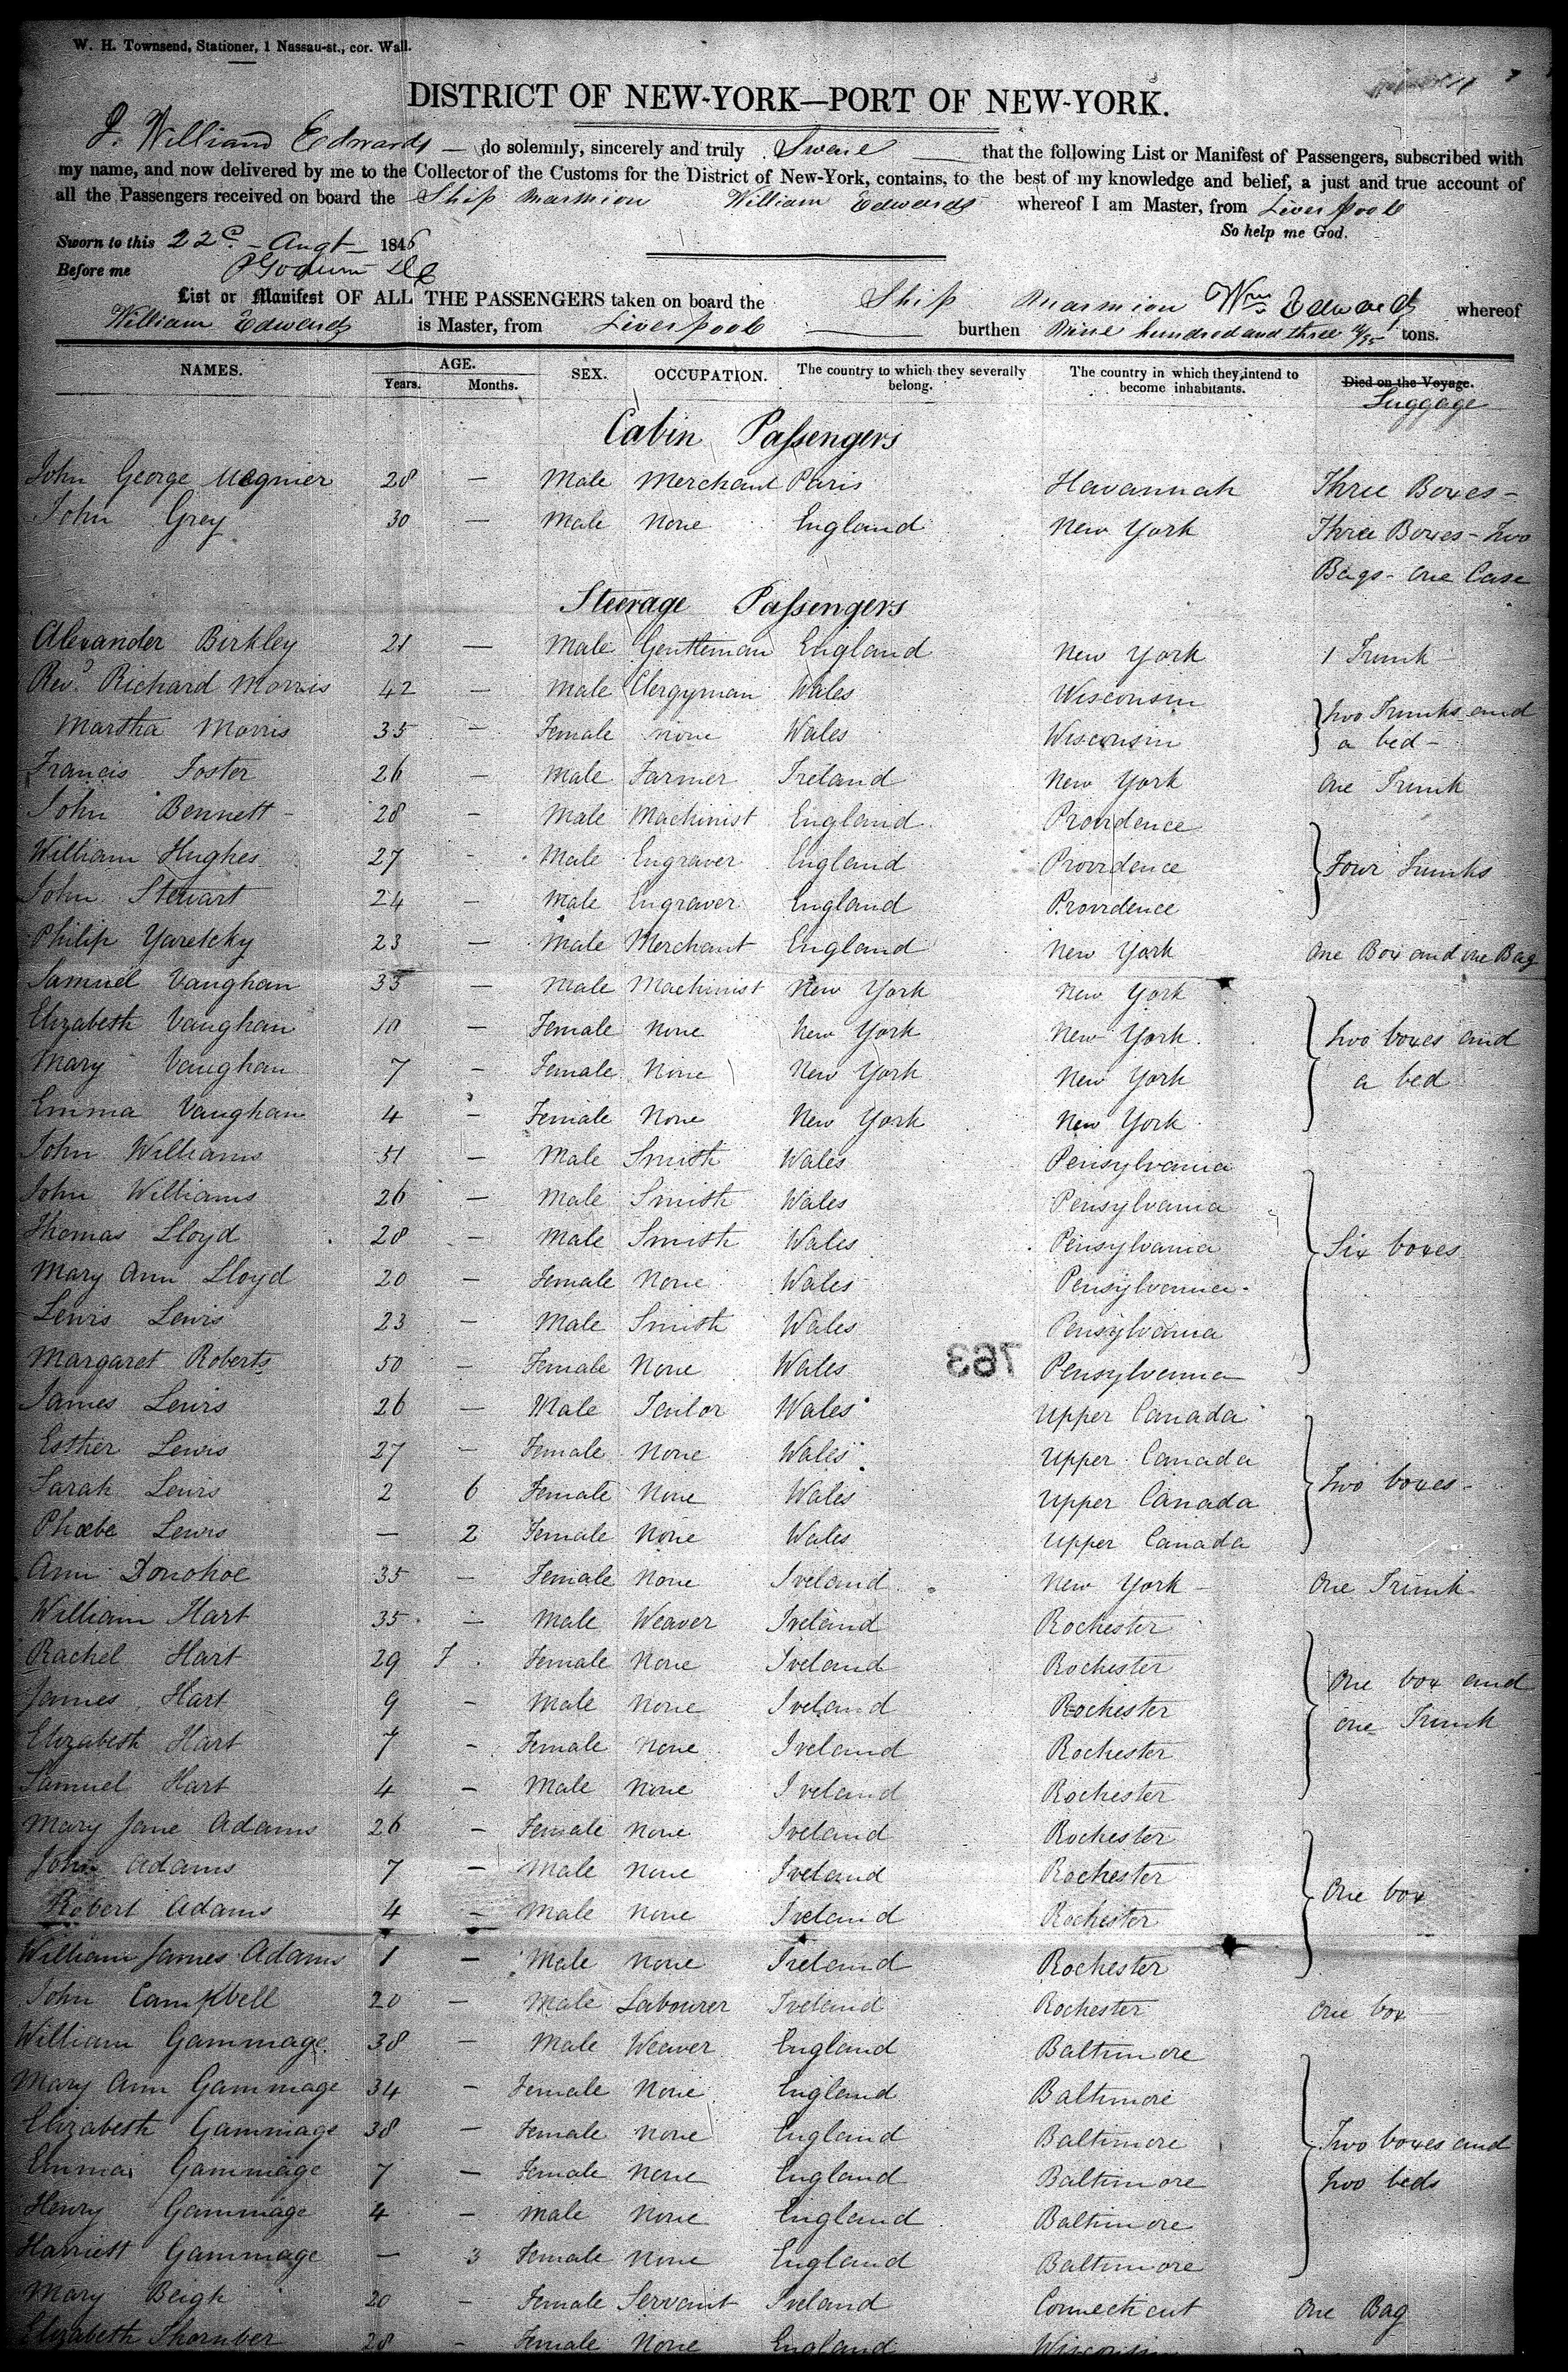 W. H. Townsend, Stationer, 1 Nassau-st., cor. Wall.
DISTRICT OF NEW-YORK—PORT OF NEW-YORK.
I. William Edwards — do solemnly, sincerely and truly Swear — that the following List or Manifest of Passengers, subscribed with
my name, and now delivered by me to the Collector of the Customs for the District of New-York, contains, to the best of my knowledge and belief, a just and true account of
all the Passengers received on board the Ship Marmion William Edwards whereof I am Master, from Liverpool
So help me God.
Sworn to this 22d. - Augt - 1846
Before me
List or Manifest OF ALL THE PASSENGERS taken on board the Ship Marmion Wm Edwards whereof
William Edwards is Master, from Liverpool — burthen Nine hundred and three /95 tons.
NAMES. AGE. Years. Months. SEX. OCCUPATION. The country to which they severally belong. The country in which they intend to become inhabitants. Died on the Voyage. Luggage
Cabin Passengers
John George Megnier 28 — Male Merchant Paris Havannah Three Boxes -
John Grey 30 — Male None England New York Three Boxes - Two
Bags - one Case
Steerage Passengers
Alexander Birkley 21 — Male Gentleman England New York 1 Trunk
Revd. Richard Morris 42 — Male Clergyman Wales Wisconsin
Martha Morris 35 - Female none Wales Wisconsin Two Trunks and a bed -
Francis Foster 26 - Male Farmer Ireland New York One Trunk
John Bennett 28 - Male Machinist England Providence
William Hughes 27 - Male Engraver England Providence Four Trunks
John Stewart 24 - Male Engraver England Providence
Philip Yaretcky 23 — Male Merchant England New York One Box and one Bag
Samuel Vaughan 33 — Male Machinist New York New York
Elizabeth Vaughan 10 - Female None New York New York Two boxes and
Mary Vaughan 7 - Female None New York New York a bed
Emma Vaughan 4 - Female None New York New York
John Williams 51 - Male Smith Wales Pensylvania
John Williams 26 - Male Smith Wales Pensylvania
Thomas Lloyd 28 - Male Smith Wales Pensylvania Six boxes
Mary Ann Lloyd 20 - Female None Wales Pensylvania
Lewis Lewis 23 - Male Smith Wales Pensylvania
Margaret Roberts 50 - Female None Wales 763 Pensylvania
James Lewis 26 — Male Tailor Wales Upper Canada
Esther Lewis 27 - Female None Wales Upper Canada
Sarah Lewis 2 6 Female None Wales Upper Canada Two boxes -
Phœbe Lewis — 2 Female None Wales Upper Canada
Ann Donohoe 35 - Female None Ireland New York One Trunk
William Hart 35 - Male Weaver Ireland Rochester
Rachel Hart 29 Female None Ireland Rochester
James Hart 9 - Male None Ireland Rochester One box and
Elizabeth Hart 7 - Female None Ireland Rochester one Trunk
Samuel Hart 4 - Male None Ireland Rochester
Mary Jane Adams 26 - Female None Ireland Rochester
John Adams 7 - Male None Ireland Rochester
Robert Adams 4 - Male None Ireland Rochester One box
William James Adams 1 - Male None Ireland Rochester
John Campbell 20 - Male Labourer Ireland Rochester One box
William Gammage 38 - Male Weaver England Baltimore
Mary Ann Gammage 34 - Female None England Baltimore
Elizabeth Gammage 38 - Female None England Baltimore Two boxes and
Emma Gammage 7 - Female None England Baltimore Two beds
Henry Gammage 4 - Male None England Baltimore
Harriett Gammage — 3 Female None England Baltimore
Mary Beigh 20 - Female Servant Ireland Connecticut One Bag
Elizabeth Thornber 28 - Female None England Wisconsin